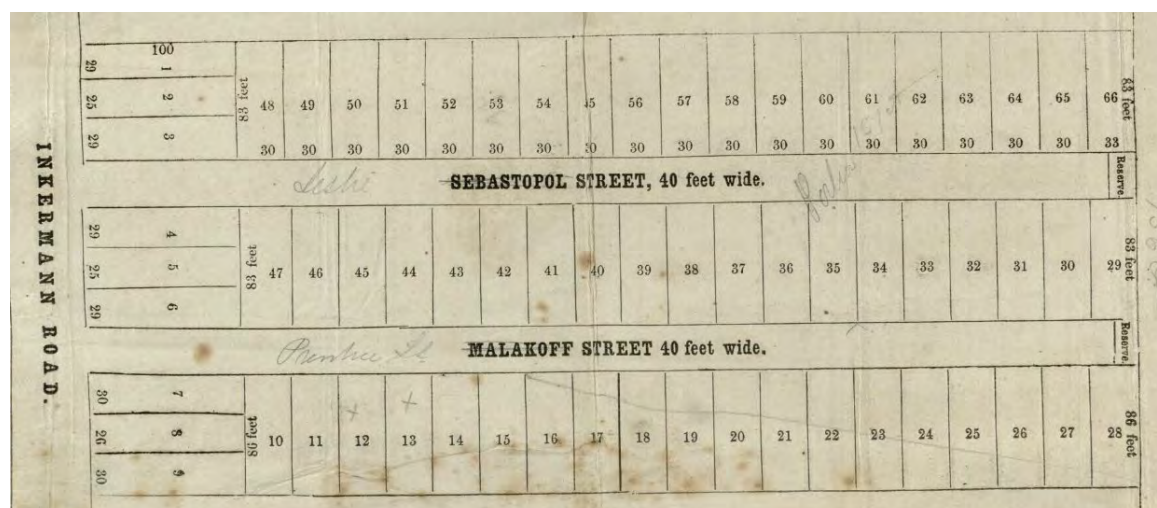 100
29 1
25 2
29 3
83 feet 48 49 50 51 52 53 54 55 56 57 58 59 60 61 62 63 64 65 66 83 feet
30 30 30 30 30 30 30 30 30 30 30 30 30 30 30 30 30 30 33
Leslie SEBASTOPOL STREET, 40 feet wide. Reserve.
INKERMANN ROAD.
29 4
25 5
29 6
83 feet 47 46 45 44 43 42 41 40 39 38 37 36 35 34 33 32 31 30 29 83 feet
Prentice St MALAKOFF STREET 40 feet wide. Reserve.
30 7
26 8
30 9
86 feet 10 11 12 13 14 15 16 17 18 19 20 21 22 23 24 25 26 27 28 86 feet